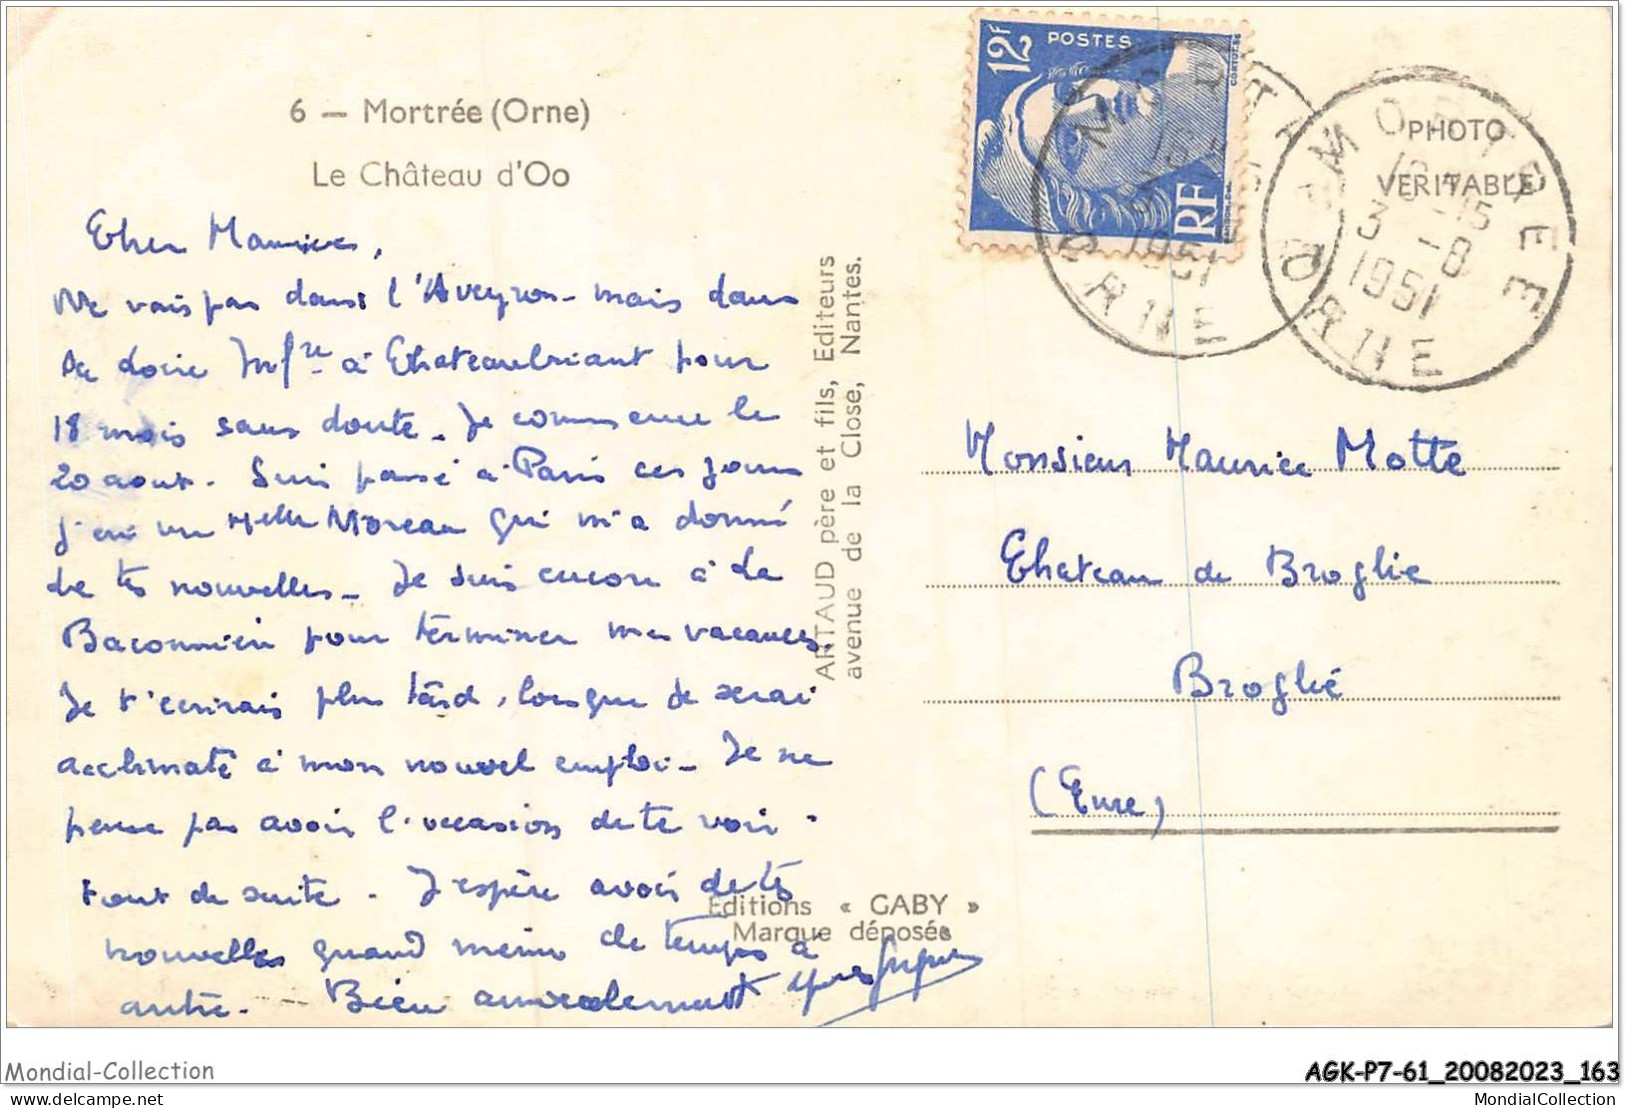 6 — Mortrée (Orne)
Le Château d'Oo
12F
POSTES
RF
MORTREE
ORNE
1951
PHOTO
VERITABLE
MORTREE
16-15
3-8
1951
ORNE
Cher Maurice,
Ne vais pas dans l'Aveyron - mais dans
la Loire Infre à Chateaubriant pour
18 mois sans doute. Je commence le
20 aout. Suis passé à Paris ces jours
j'ai vu Melle Moreau qui m'a donné
de tes nouvelles - Je suis encore à La
Baconnière pour terminer mes vacances.
Je t'écrirais plus tard, lorsque je serai
acclimaté à mon nouvel emploi - Je ne
pense pas avoir l'occasion de te voir
tout de suite. J'espère avoir de tes
nouvelles quand même de temps à
autre. - Bien amicalement
ARTAUD père et fils, Editeurs
avenue de la Close, Nantes.
Editions « GABY »
Marque déposée
Monsieur Maurice Motte
Chateau de Broglie
Broglie
(Eure)
Mondial-Collection
AGK-P7-61_20082023_163
delcampe.net
MondialCollection